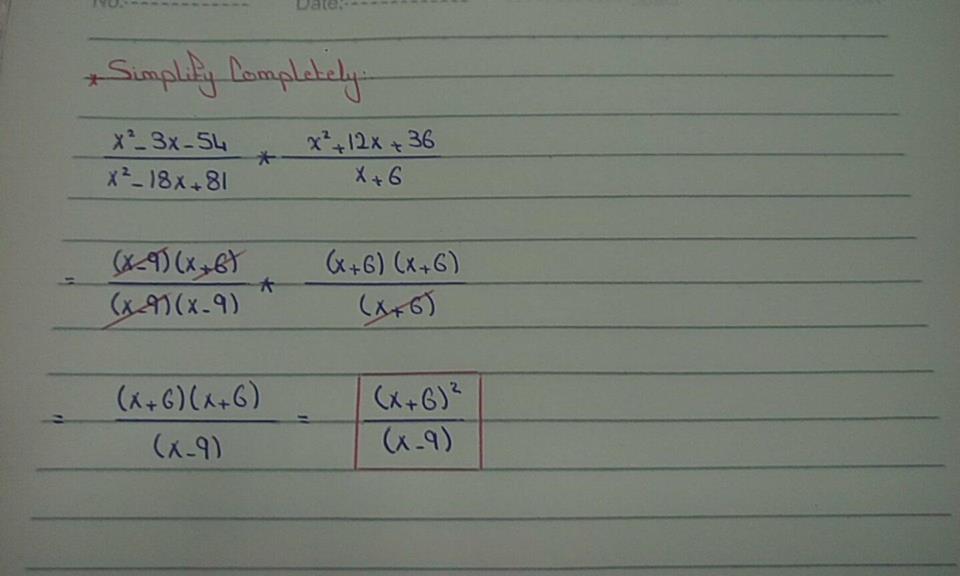 No.
Date:
* Simplify Completely:
x² - 3x - 54 / x² - 18x + 81 * x² + 12x + 36 / x + 6
= (x - 9)(x + 6) / (x - 9)(x - 9) * (x + 6)(x + 6) / (x + 6)
= (x + 6)(x + 6) / (x - 9) = (x + 6)² / (x - 9)